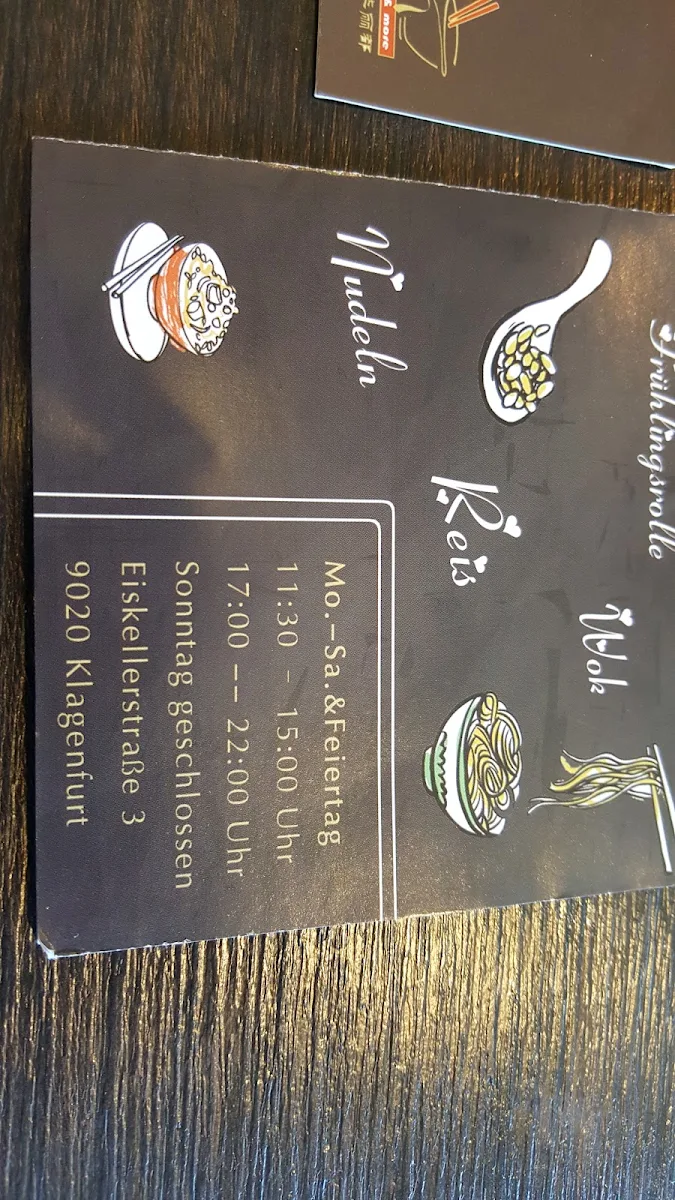 & more
Frühlingsrolle
Wok
Reis
Nudeln
Mo.–Sa.&Feiertag
11:30 – 15:00 Uhr
17:00 –– 22:00 Uhr
Sonntag geschlossen
Eiskellerstraße 3
9020 Klagenfurt